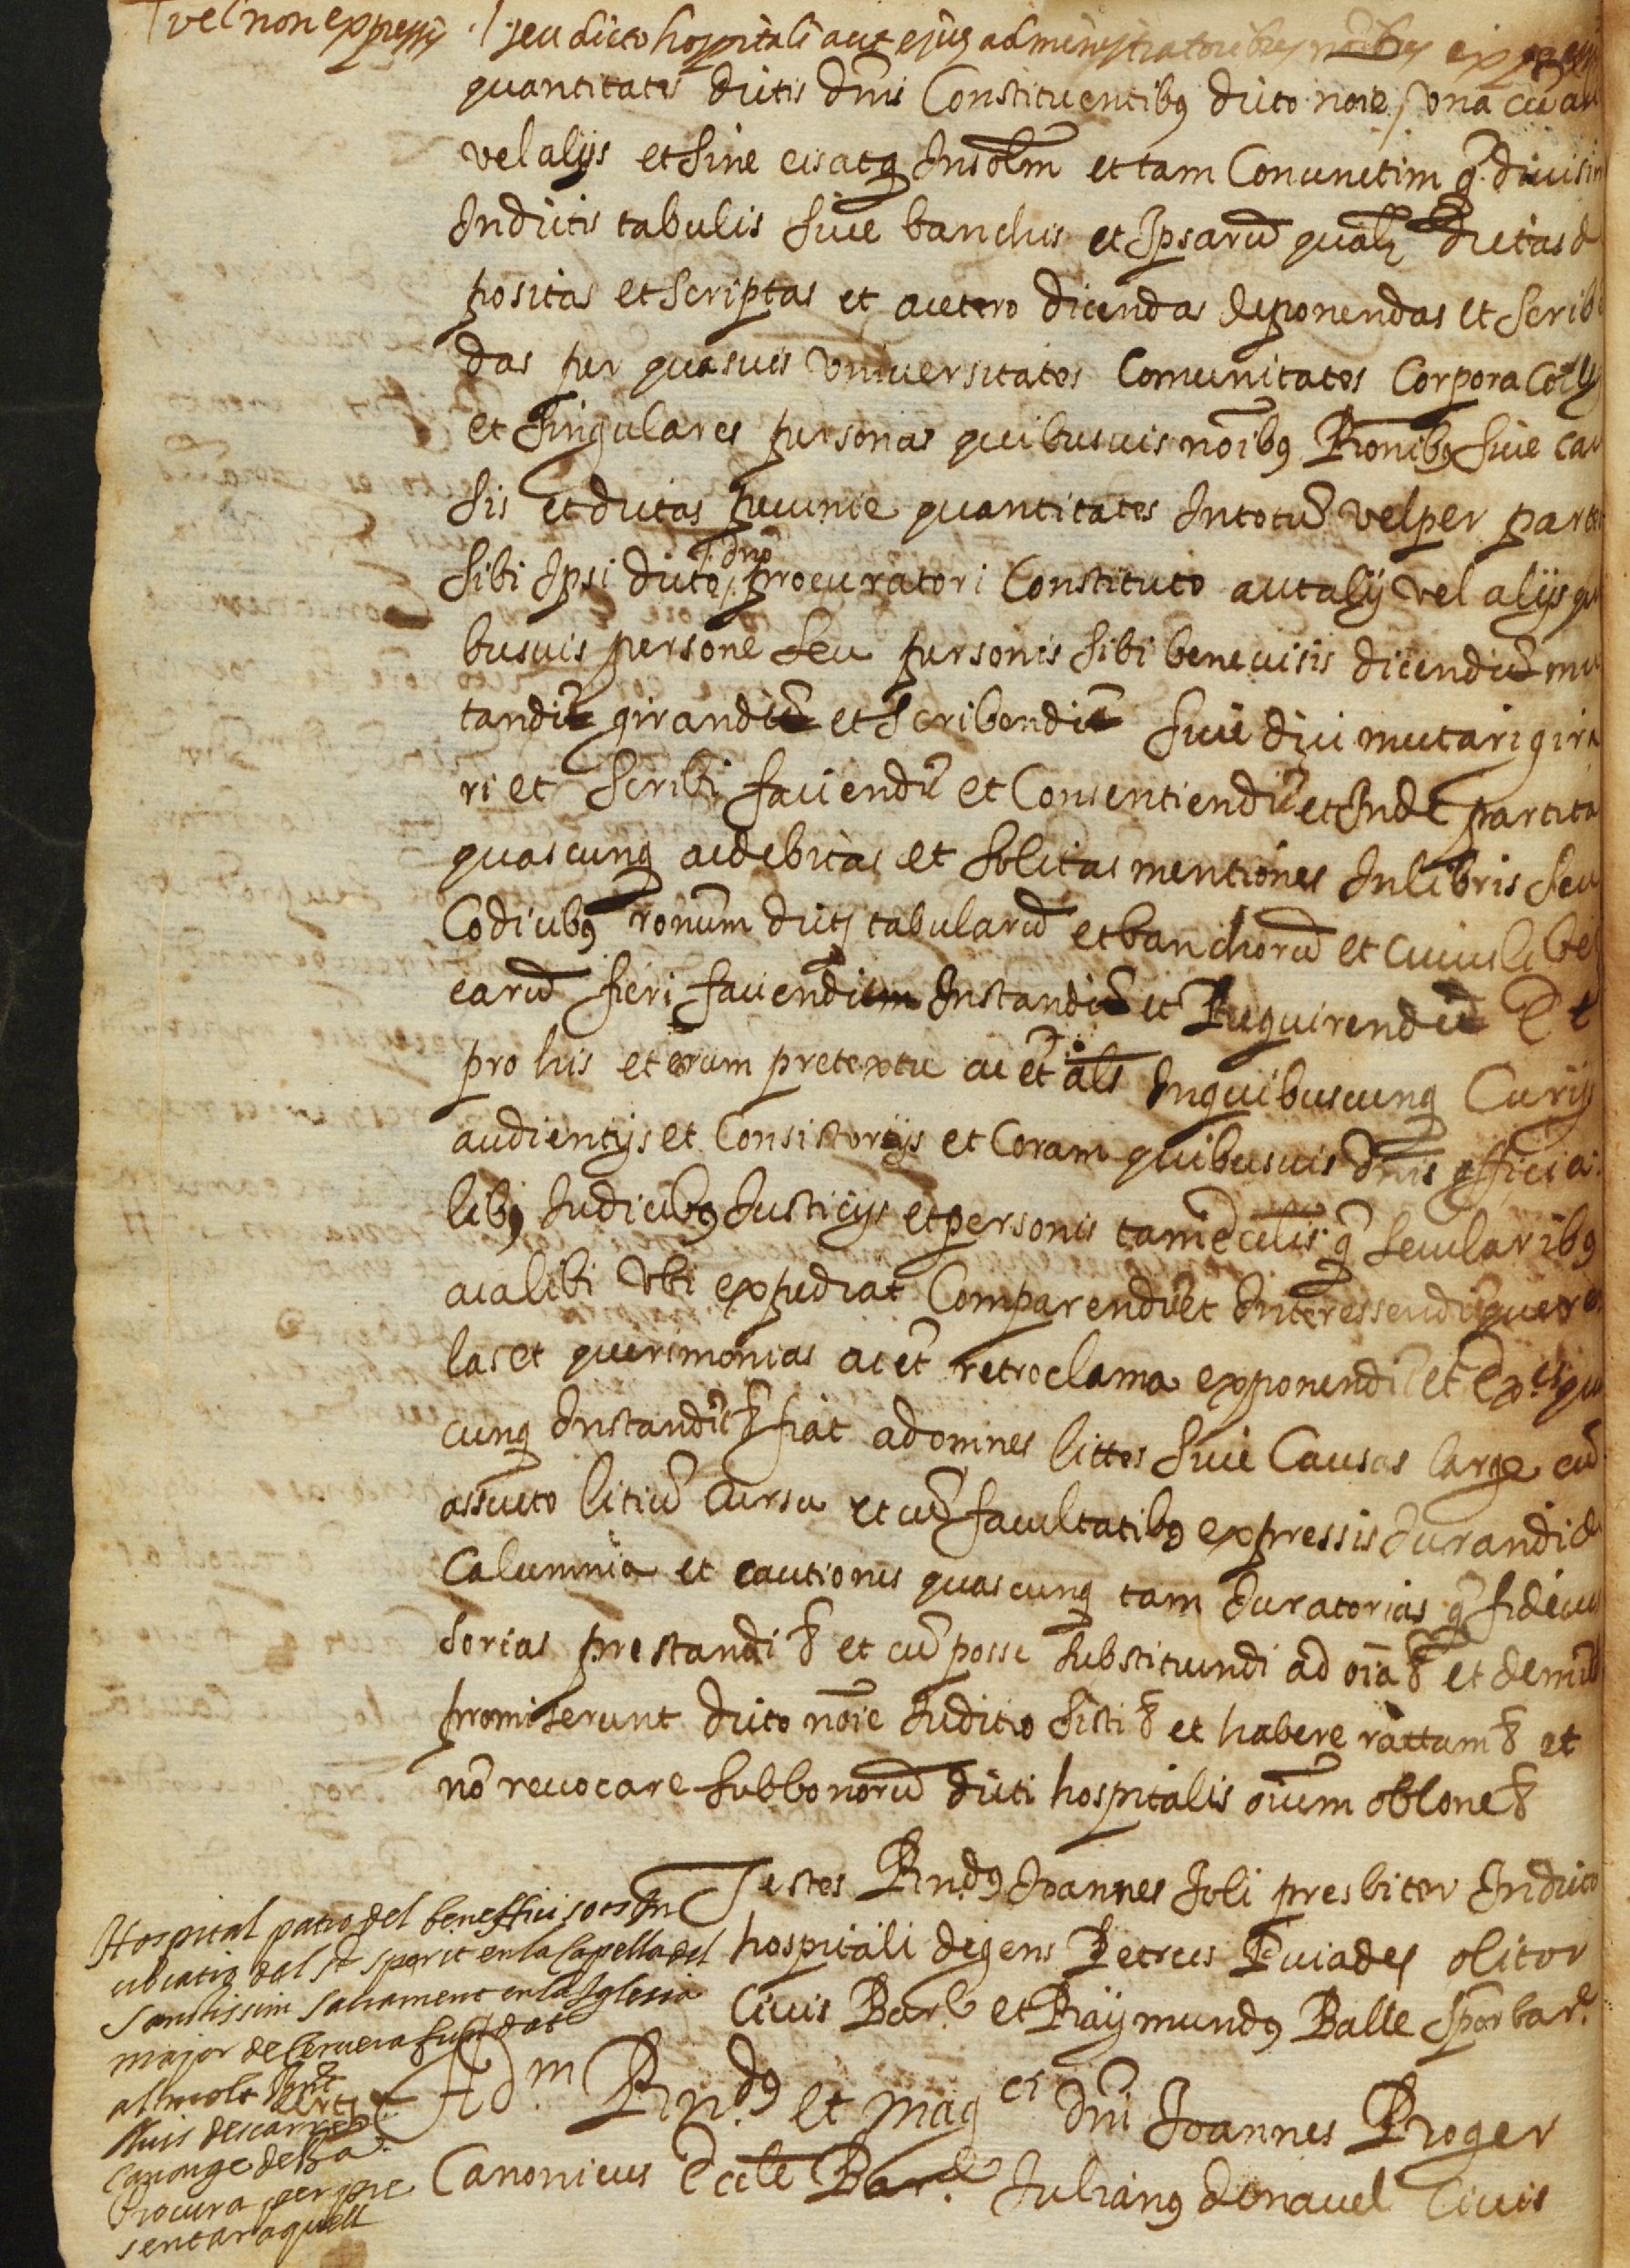 vel non expressis / seu dicto hospitali aut ejus administratoribus
quantitates dictis dnis Constituentibus dicto noie / vna cu
vel alijs et sine eis atq Insolm et tam Coniunctim q diuisim
In dictis tabulis siue banchis et Ipsaru qualt dictas d
positas et scriptas et acetero dicendas deponendas et scrib
das per quasuis vniuersitates Comunitates Corpora
et singulares personas quibusuis noibs Ronibs siue cau
sis et dictas pecunie quantitates In totu vel per parte
dno
sibi Ipsi dicto / procuratori Constituto aut alij vel alijs qui
busuis persone seu personis sibi bene visis dicendu mu
tandu girandu et scribendu siue dici mutari gira
ri et scribi faciendu et Consentiendu et Inde partita
quascunq ac debitas et solitas mentiones In libris seu
Codicibs ronum dict tabularu et banchoru et cuiuslibet
earu fieri faciendum Instandu et Requirendu Et
pro his et eorum pretextu ac et als In quibuscunq Curijs
audientijs et Consistorijs et Coram quibusuis dnis officia
libs Judicibs Justicijs et personis tam Ecclis q secularibs
ac alibi vbi expediat Comparendu et Interessendu quere
las et querimonias ac et retroclama exponendi et
cunq Instandu fiat ad omnes littes siue Causas large cu
assueto litiu cursu et cu facultatibs expressis Jurandi de
Calumnia et cautiones quascunq tam Juratorias q fideius
sorias prestandi & et cu posse substituendi ad oia & et demu
promiserunt dicto noie Juditio sisti & et habere rattam & et
no reuocare sub bonoru dicti hospitalis oium oblone &
Testes Rnds Joannes Joli presbiter In dicto
hospitali degens Petrus Puiades olitor
Ciuis Bar. et Raymunds Balle
Hospital patro del beneffici
del st sperit en la Capella del
Santissim Sacrament en la Iglesia
major de Ceruera fundat
al molt
lluis descarrer
Canonge de Ba.
Procura per pre
sentar aquell
Adm. Rnds et magci dni Joannes Roger
Canonicus Eccle Bar. Julians de nauel Ciuis